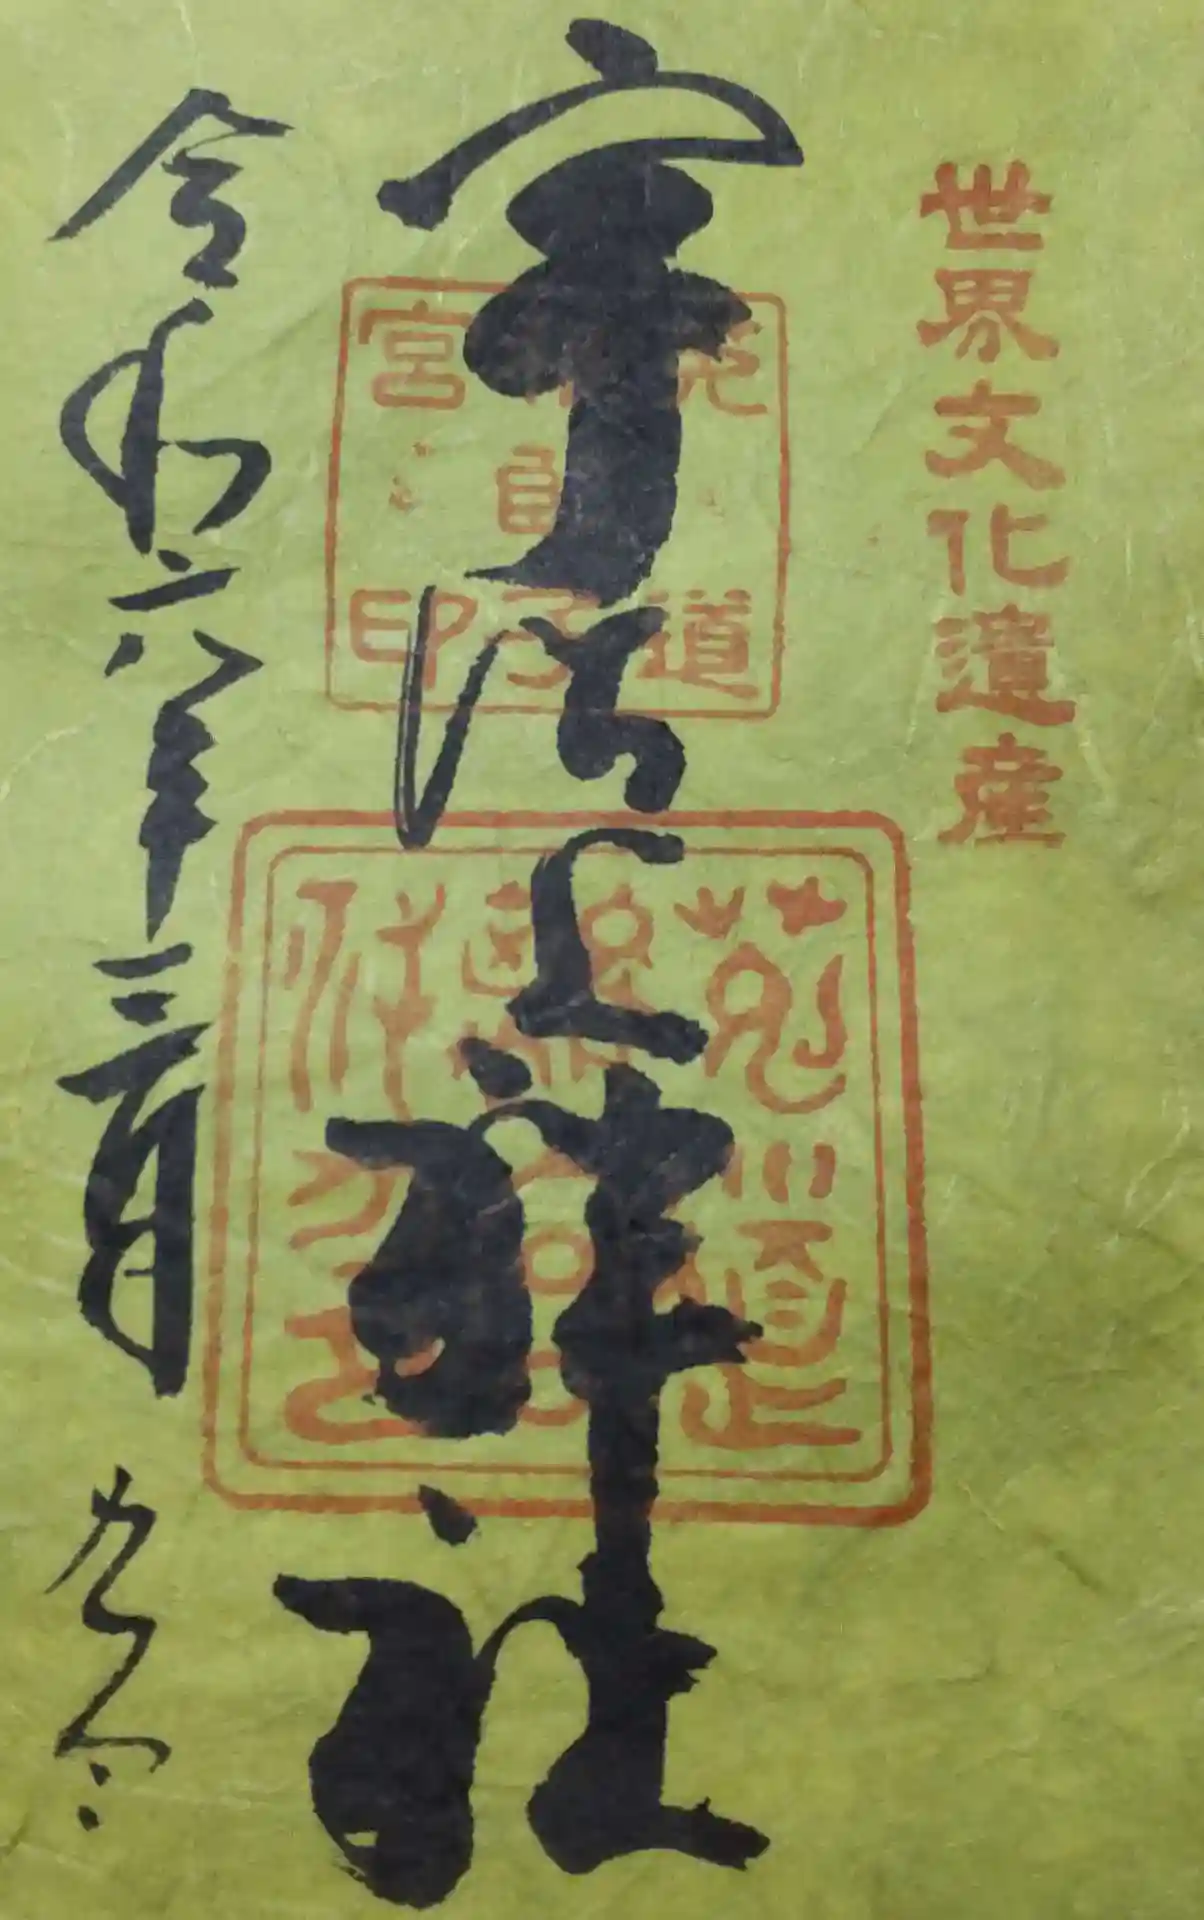 世界文化遺産
宇治上神社
莵道
稚郎子
宮印
令和六年三月九日